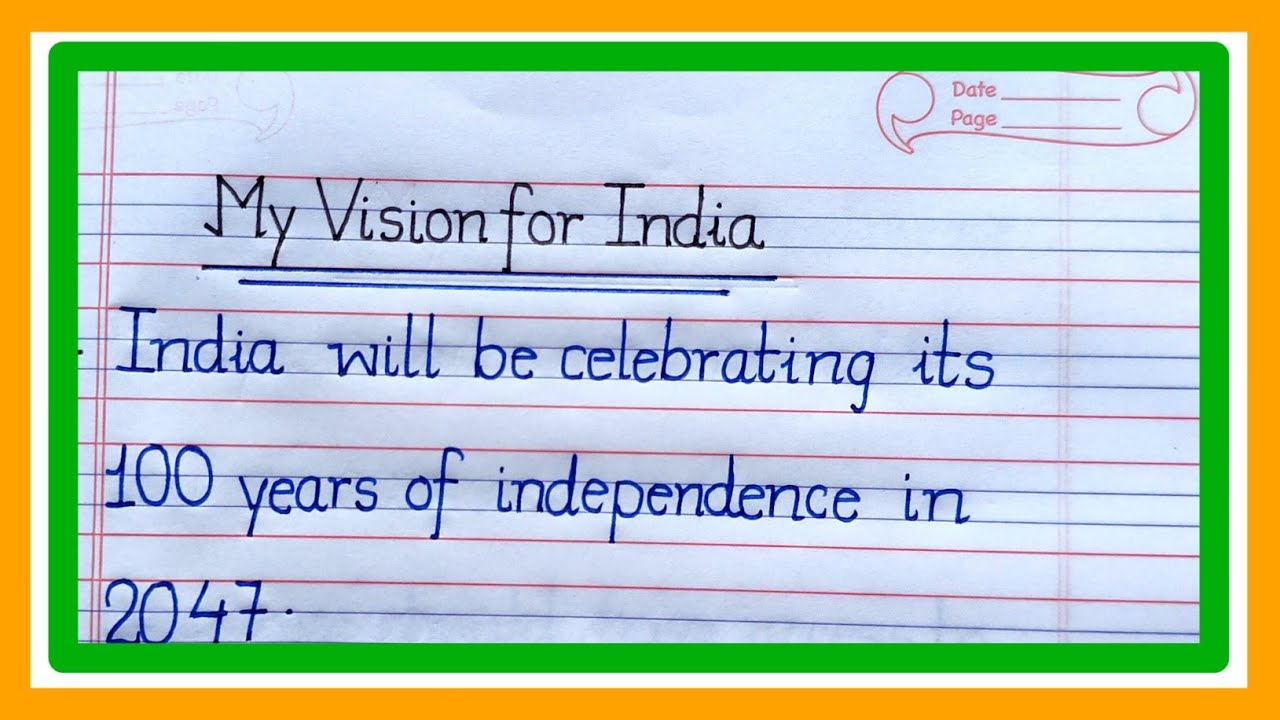 Date
Page
My Vision for India
India will be celebrating its
100 years of independence in
2047.